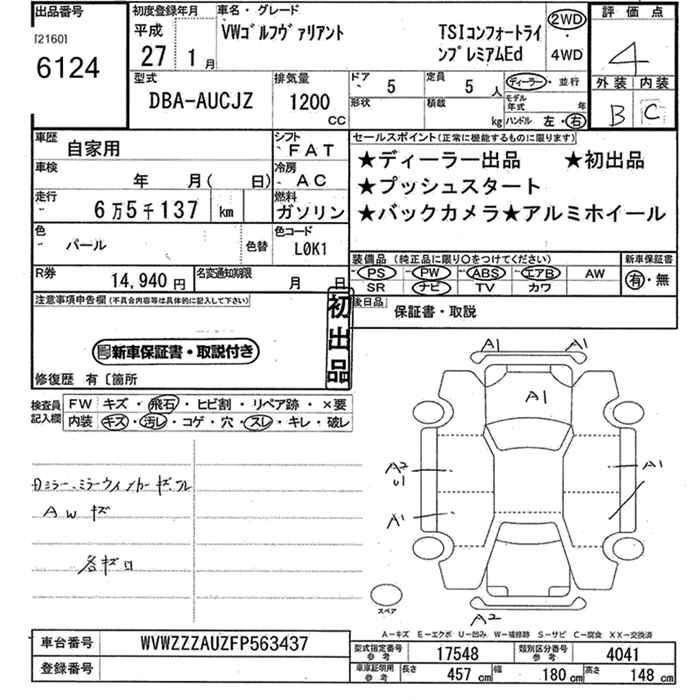 出品番号
[2160]
6124
初度登録年月
平成
27 1月
車名・グレード
VWゴルフヴァリアント
TSIコンフォートライ
ンプレミアムEd
2WD
・
4WD
評価点
4
外装 内装
B C
型式
DBA-AUCJZ
排気量
1200
CC
ドア
5
定員
5 人
形状
積載
kg
ディーラー・並行
モデル
年式 年
ハンドル 左・右
車歴
自家用
シフト
FAT
車検
年 月( 日)
冷房
AC
走行
6万5千137 km
燃料
ガソリン
色
パール
色替
色コード
L0K1
R券
14,940 円
名変通知期限
月 日
セールスポイント(正常に機能するものに限ります)
★ディーラー出品 ★初出品
★プッシュスタート
★バックカメラ★アルミホイール
装備品(純正品に限り○をつけてください)
PS PW ABS エアB AW
SR ナビ TV カワ
新車保証書
有・無
注意事項申告欄(不具合内容等は具体的に記入して下さい)
新車保証書・取説付き
初出品
修復歴 有〔箇所
後日品
保証書・取説
検査員
記入欄
FW キズ・飛石・ヒビ割・リペア跡・×要
内装 キズ・汚レ・コゲ・穴・スレ・キレ・破レ
AWキズ
A1 A1
A1
A2
U1
A1
A1
A2
スペア
A-キズ E-エクボ U-凹み W-補修跡 S-サビ C-腐食 XX-交換済
車台番号
WVWZZZAUZFP563437
登録番号
型式指定番号
参考
17548
類別区分番号
参考
4041
車庫証明用
参考
長さ
457 cm
幅
180 cm
高さ
148 cm